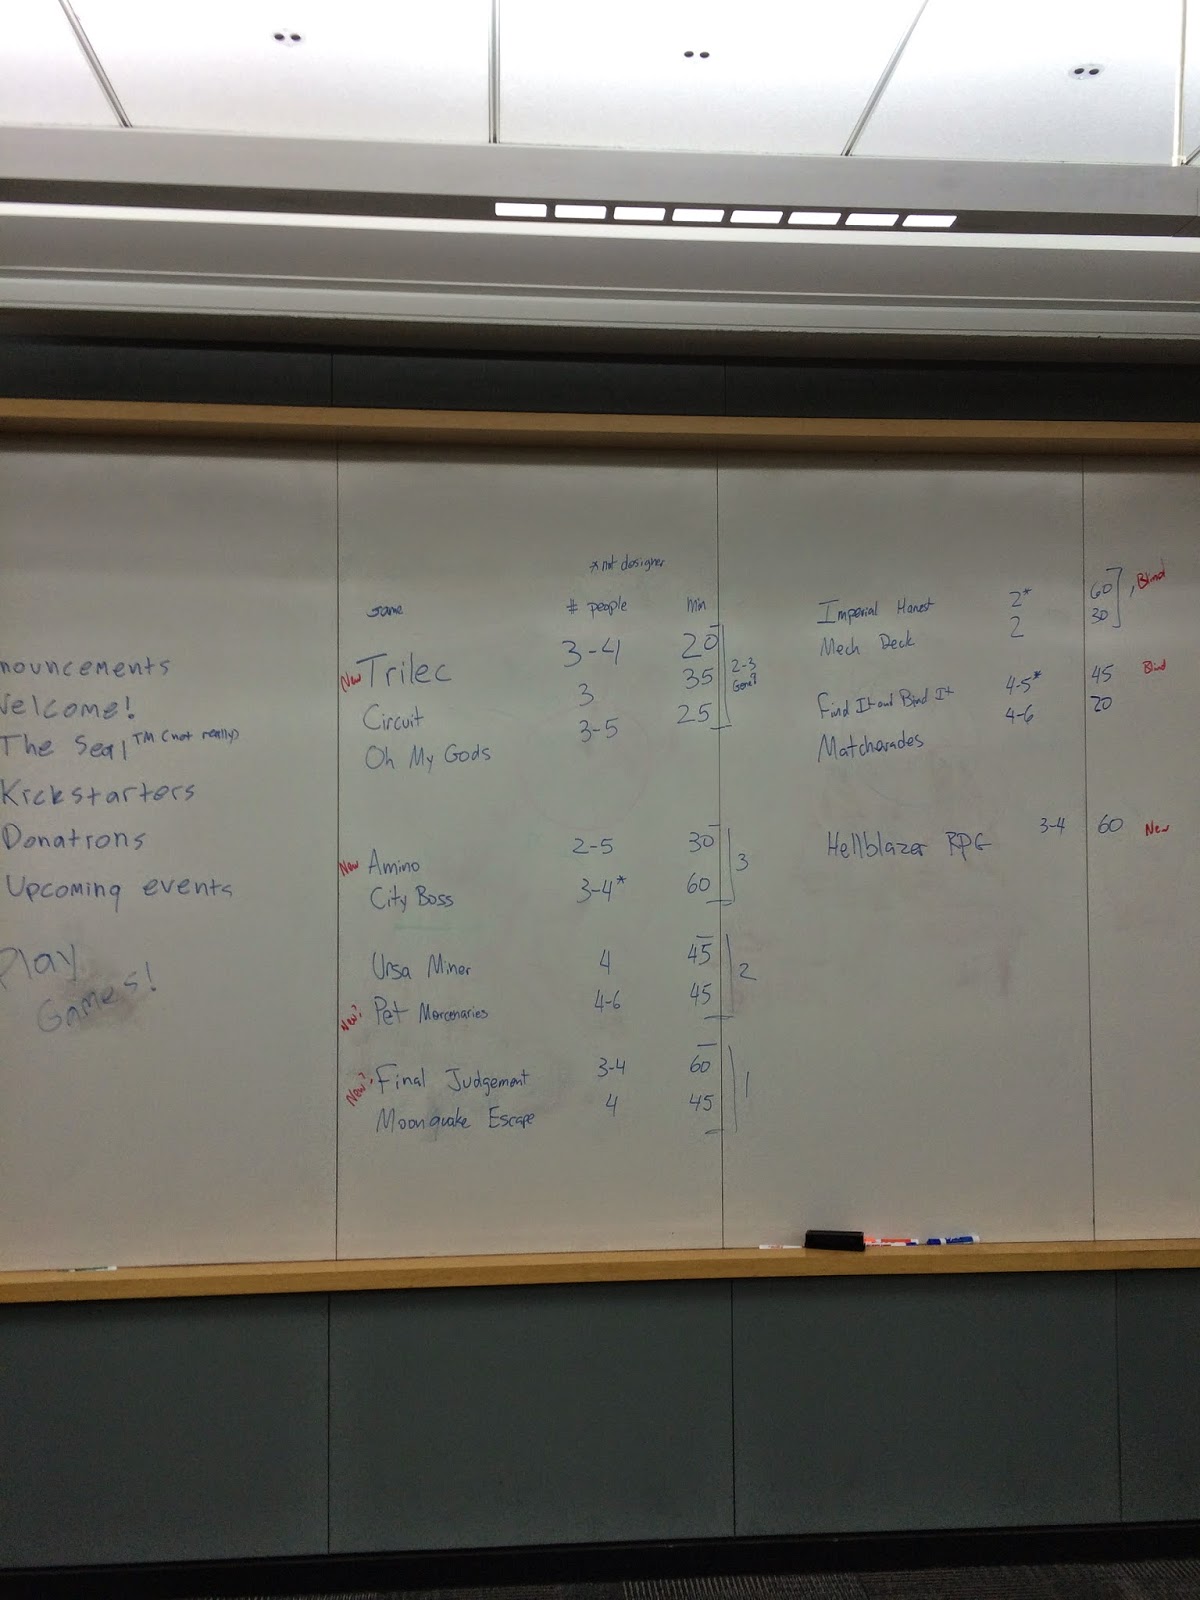 nouncements
Welcome!
The Seal TM (not really)
Kickstarters
Donations
Upcoming events
Play
Games!
*not designer
game # people Min
New Trilec 3-4 20
Circuit 3 35
Oh My Gods 3-5 25
2-3
New Amino 2-5 30
City Boss 3-4* 60
3
Ursa Miner 4 45
New? Pet Mercenaries 4-6 45
2
New? Final Judgement 3-4 60
Moonquake Escape 4 45
1
Imperial Harvest 2* 60
Mech Deck 2 30
Blind
Find It and Bind It 4-5* 45 Blind
Matcharades 4-6 20
Hellblazer RPG 3-4 60 New